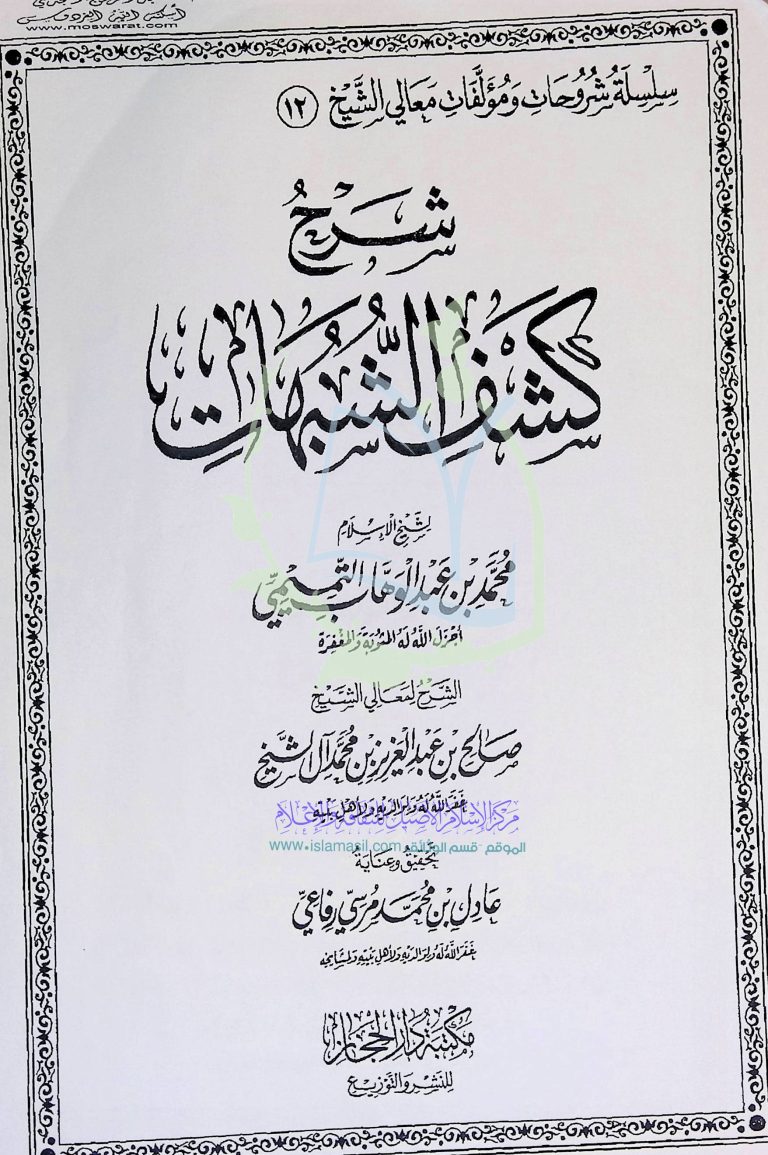 أسكنه الله الفردوس
www.moswarat.com
سِلْسِلَةُ شُرُوحَاتِ وَمُؤَلَّفَاتِ مَعَالِي الشَّيْخِ ١٢
شَرْحُ
كَشْفِ الشُّبُهَاتِ
لِشَيْخِ الإِسْلَامِ
مُحَمَّدِ بْنِ عَبْدِ الْوَهَّابِ التَّمِيمِيِّ
أَجْزَلَ اللَّهُ لَهُ المَثُوبَةَ وَالمَغْفِرَةَ
الشَّرْحُ لِمَعَالِي الشَّيْخِ
صَالِحِ بْنِ عَبْدِ الْعَزِيزِ بْنِ مُحَمَّدٍ آلِ الشَّيْخِ
غَفَرَ اللَّهُ لَهُ وَلِوَالِدَيْهِ وَلأَهْلِ بَيْتِهِ
مركز الإسلام الأصيل للثقافة والإعلام
الموقع - قسم الوثائق www.islamasil.com
تَحْقِيقُ وَعِنَايَةُ
عَادِلِ بْنِ مُحَمَّدِ مُرْسِي رِفَاعِي
غَفَرَ اللَّهُ لَهُ وَلِوَالِدَيْهِ وَلأَهْلِ بَيْتِهِ وَلِمَشَايِخِهِ
مَكْتَبَةُ دَارِ الْحِجَازِ
لِلنَّشْرِ وَالتَّوْزِيعِ